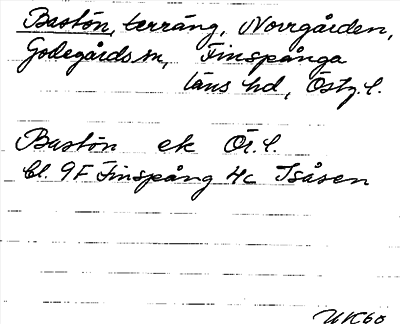 Bastön, terräng, Norrgården,
Godegårds sn, Finspånga
läns hd, Östg. l.
Bastön ek Ör. l.
bl. 9F Finspång 4c Isåsen
UK60